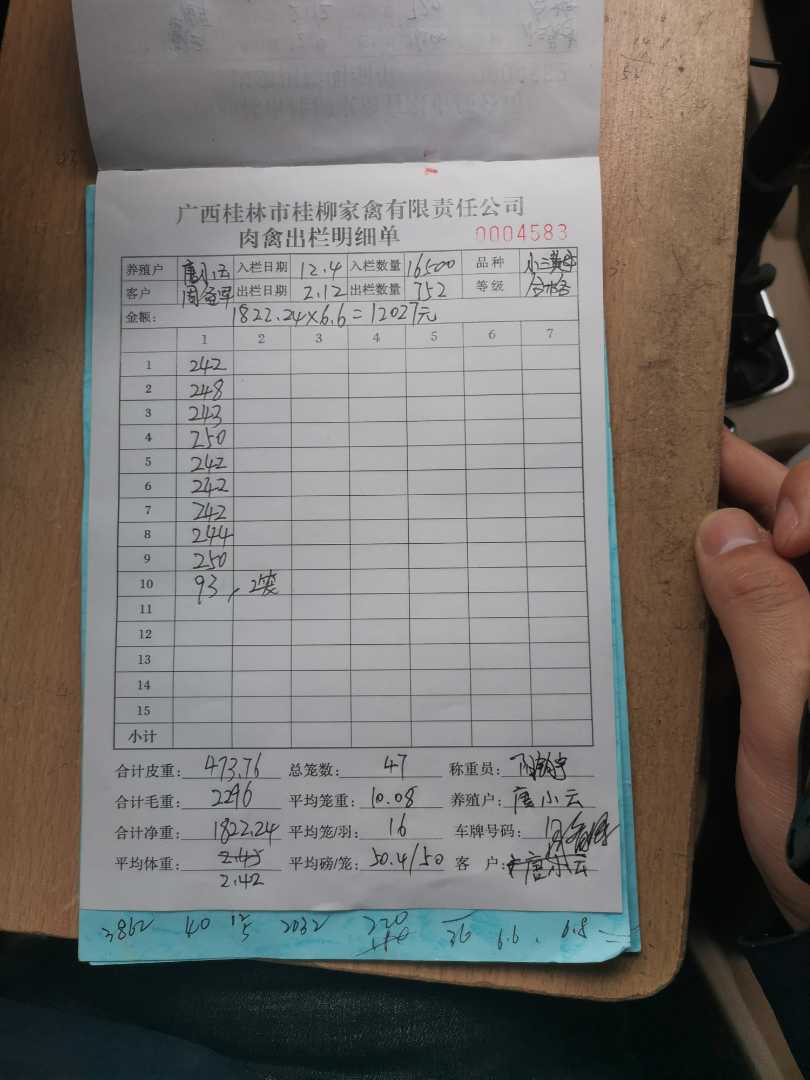 广西桂林市桂柳家禽有限责任公司
肉禽出栏明细单 0004583
养殖户 唐小云 入栏日期 12.4 入栏数量 16500 品种 小三黄
客户 出栏日期 2.12 出栏数量 752 等级 合格
金额: 1822.24×6.6=12027元
1 2 3 4 5 6 7
1 242
2 248
3 243
4 250
5 242
6 242
7 242
8 244
9 250
10 93
11
12
13
14
15
小计
合计皮重: 473.76 总笼数: 47 称重员:
合计毛重: 2296 平均笼重: 10.08 养殖户: 唐小云
合计净重: 1822.24 平均笼/羽: 16 车牌号码:
平均体重: 2.45 平均磅/笼: 50.4/50 客户: 唐小云
2.42
3862 40 12/5 2032 220 36 6.6. 6.8